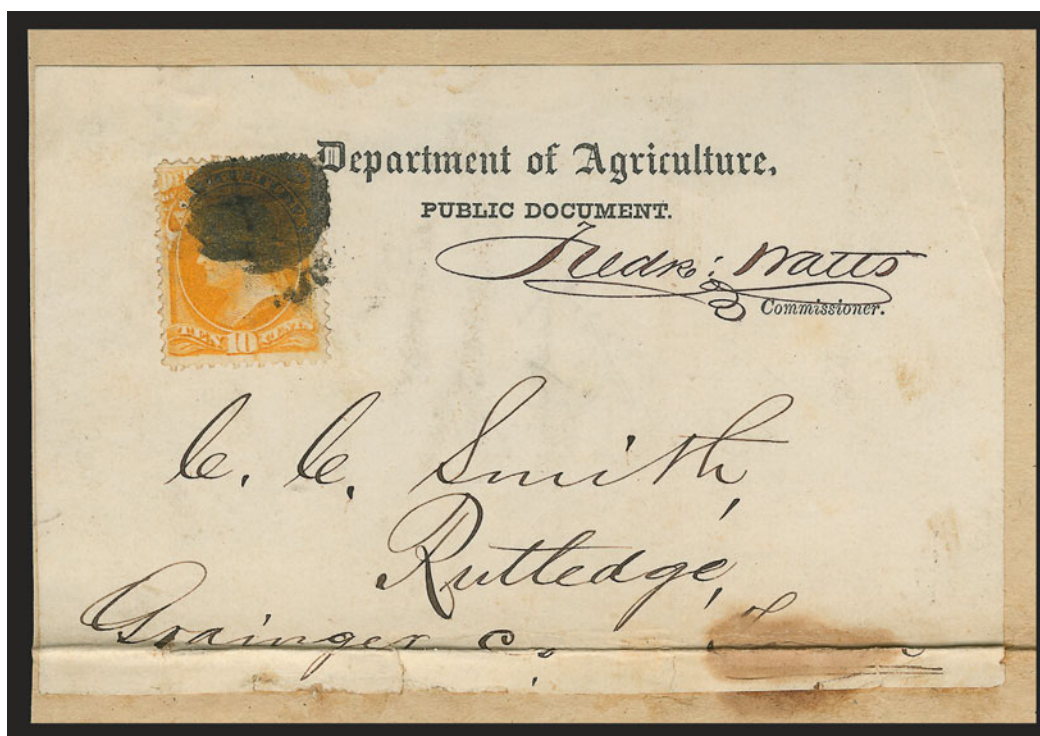 Department of Agriculture,
PUBLIC DOCUMENT.
Fredk: Watts
Commissioner.
TEN 10 CENTS
C. C. Smith,
Rutledge,
Grainger Co.